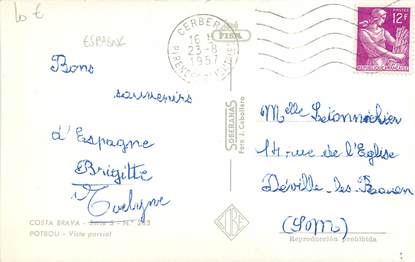 10 €
ESPAGNE
CERBERE
16 H
23-8
1957
PYRENEES ORIENTALES
POSTES
12F
REPUBLIQUE FRANÇAISE
Bons
souvenirs
d'Espagne
Brigitte
Evelyne
COSTA BRAVA - Serie
PORTBOU - Vista parcial
SOBERANAS
Foto J. Caballero
Melle
14 rue de l'Eglise
Déville-les-Rouen
(S.M)
Reproducción prohibida